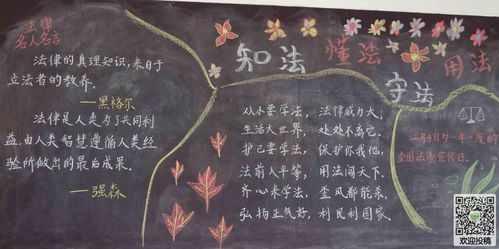 法律
名人名言
法律的真理知识,来自于
立法者的教养.
——黑格尔
法律是人类为了共同利
益,由人类智慧遵循人类经
验所做出的最后成果.
——强森
知法 懂法 用法
守法
从小要学法, 法律威力大,
生活大世界, 处处不离它.
护己要学法, 保护你我他,
法前人平等, 用法闯天下.
齐心来学法, 歪风都能杀,
弘扬正气好, 利民利国家.
二月4日为一年一度的
全国法制宣传日.
欢迎投稿